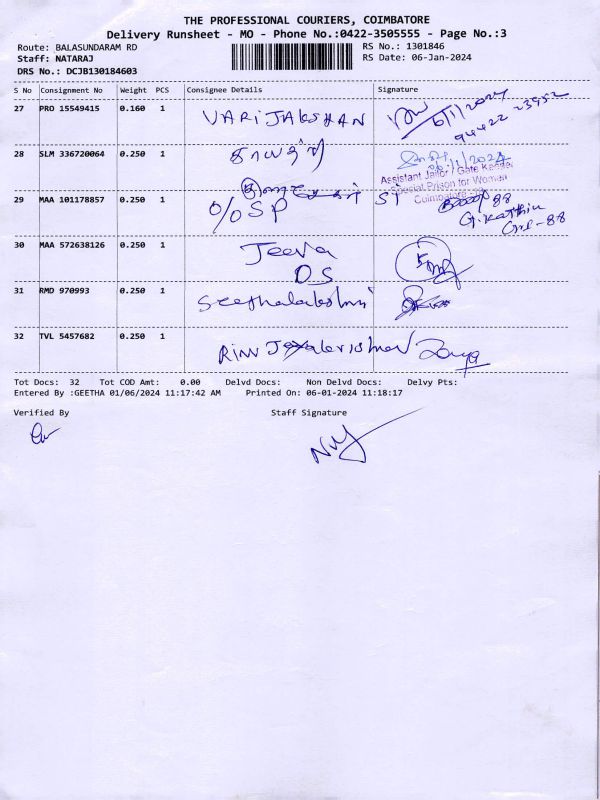 THE PROFESSIONAL COURIERS, COIMBATORE
Delivery Runsheet - MO - Phone No.:0422-3505555 - Page No.:3
Route: BALASUNDARAM RD
RS No.: 1301846
Staff: NATARAJ
RS Date: 06-Jan-2024
DRS No.: DCJB130184603
S No Consignment No Weight PCS Consignee Details Signature
27 PRO 15549415 0.160 1 VARIJAKSHAN 6/1/2024
94422 23952
28 SLM 336720064 0.250 1 காயத்ரி
Assistant Jailor / Gate Keeper
Special Prison for Women
Coimbatore
29 MAA 101178857 0.250 1 O/O SP
30 MAA 572638126 0.250 1 Jeeva
O.S
31 RMD 970993 0.250 1 Seethalakshmi
32 TVL 5457682 0.250 1
Tot Docs: 32 Tot COD Amt: 0.00 Delvd Docs: Non Delvd Docs: Delvy Pts:
Entered By :GEETHA 01/06/2024 11:17:42 AM Printed On: 06-01-2024 11:18:17
Verified By Staff Signature